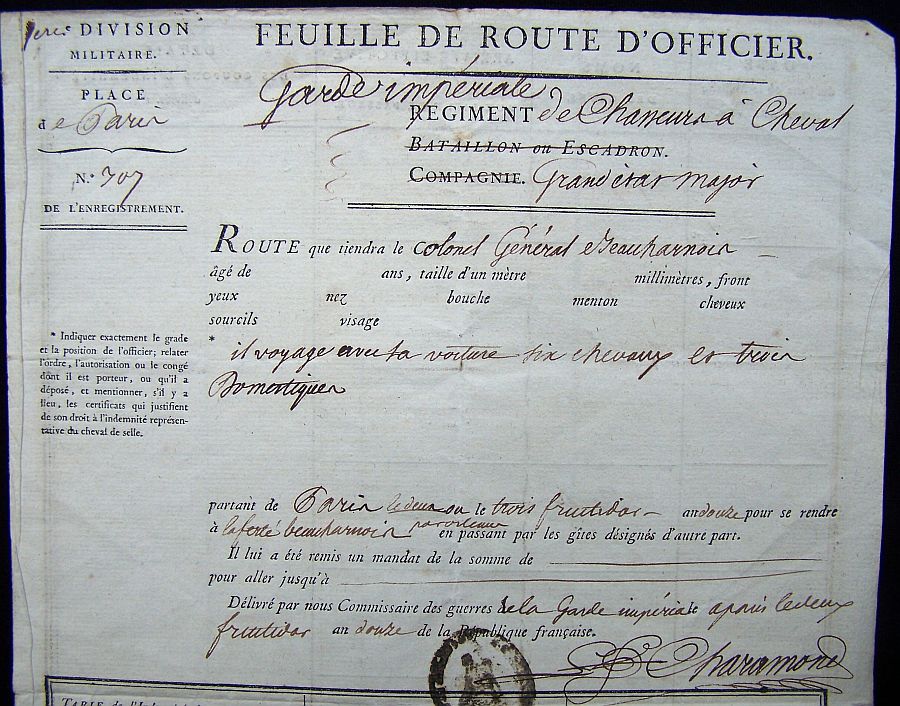 1ere DIVISION
MILITAIRE.
PLACE
de Paris
N.º 307
DE L'ENREGISTREMENT.
* Indiquer exactement le grade
et la position de l'officier; relater
l'ordre, l'autorisation ou le congé
dont il est porteur, ou qu'il a
déposé, et mentionner, s'il y a
lieu, les certificats qui justifient
de son droit à l'indemnité représen-
tative du cheval de selle.
FEUILLE DE ROUTE D'OFFICIER.
Garde impériale
REGIMENT de Chasseurs à Cheval
BATAILLON ou ESCADRON.
COMPAGNIE. Grand état major
ROUTE que tiendra le Colonel Général Beauharnois
âgé de ans, taille d'un mètre millimètres, front
yeux nez bouche menton cheveux
sourcils visage
* il voyage avec sa voiture six chevaux et trois
Domestiques
partant de Paris le deux ou le trois fructidor an douze pour se rendre
à la ferté beauharnois par orleans en passant par les gîtes désignés d'autre part.
Il lui a été remis un mandat de la somme de
pour aller jusqu'à
Délivré par nous Commissaire des guerres de la Garde impériale a paris le deux
fructidor an douze de la République française.
Charamond